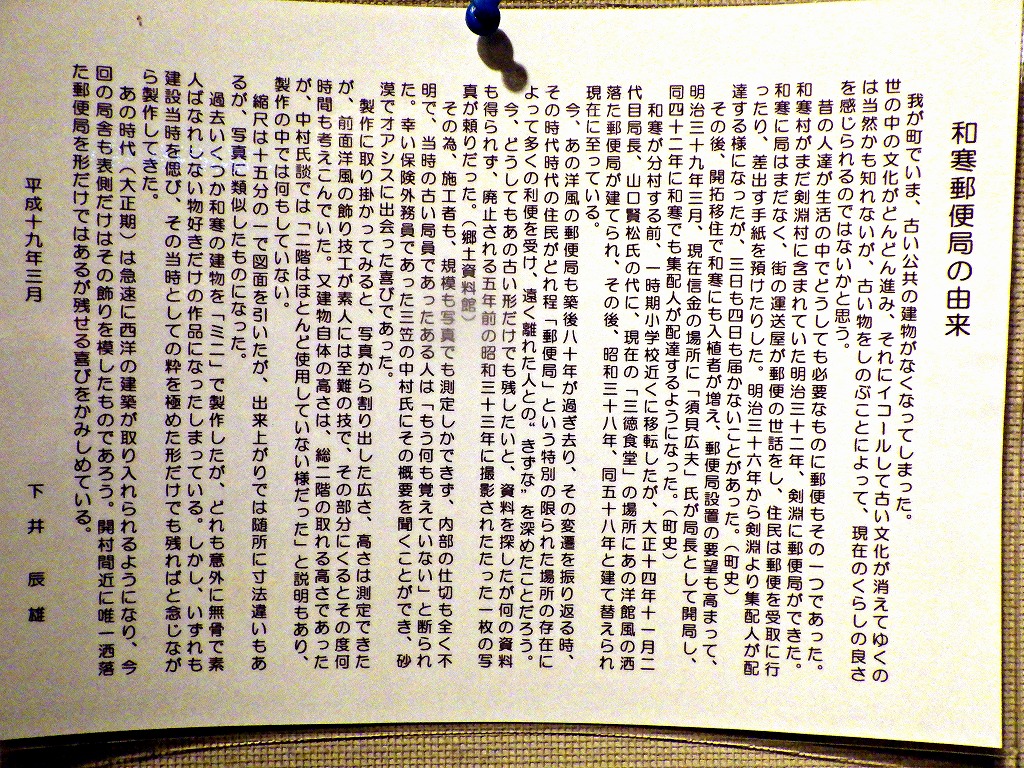 和寒郵便局の由来
我が町でいま、古い公共の建物がなくなってしまった。
世の中の文化がどんどん進み、それにイコールして古い文化が消えてゆくの
は当然かも知れないが、古い物をしのぶことによって、現在のくらしの良さ
を感じられるのではないかと思う。
昔の人達が生活の中でどうしても必要なものに郵便もその一つであった。
和寒村がまだ剣淵村に含まれていた明治三十二年、剣淵に郵便局ができた。
和寒に局はまだなく、街の運送屋が郵便の世話をし、住民は郵便を受取に行
ったり、差出す手紙を預けたりした。明治三十六年から剣淵より集配人が配
達する様になったが、三日も四日も届かないことがあった。（町史）
その後、開拓移住で和寒にも入植者が増え、郵便局設置の要望も高まって、
明治三十九年三月、現在信金の場所に「須貝広夫」氏が局長として開局し、
同四十二年に和寒でも集配人が配達するようになった。（町史）
和寒が分村する前、一時期小学校近くに移転したが、大正十四年十一月二
代目局長、山口賢松氏の代に、現在の「三徳食堂」の場所にあの洋館風の洒
落た郵便局が建てられ、その後、昭和三十八年、同五十八年と建て替えられ
現在に至っている。
今、あの洋風の郵便局も築後八十年が過ぎ去り、その変遷を振り返る時、
その時代時代の住民がどれ程「郵便局」という特別の限られた場所の存在に
よって多くの利便を受け、遠く離れた人との“きずな”を深めたことだろう。
今、どうしてもあの古い形だけでも残したいと、資料を探したが何の資料
も得られず、廃止される五年前の昭和三十三年に撮影されたたった一枚の写
真が頼りだった。（郷土資料館）
その為、施工者も、規模も写真でも測定しかできず、内部の仕切も全く不
明で、当時の古い局員であったある人は「もう何も覚えていない」と断られ
た。幸い保険外務員であった三笠の中村氏にその概要を聞くことができ、砂
漠でオアシスに出会った喜びであった。
製作に取り掛かってみると、写真から割り出した広さ、高さは測定できた
が、前面洋風の飾り技工が素人には至難の技で、その部分にくるとその度何
時間も考えこんでいた。又建物自体の高さは、総二階の取れる高さであった
が、中村氏談では「二階はほとんど使用していない様だった」と説明もあり、
製作の中では何もしていない。
縮尺は十五分の一で図面を引いたが、出来上がりでは随所に寸法違いもあ
るが、写真に類似したものになった。
過去いくつか和寒の建物を「ミニ」で製作したが、どれも意外に無骨で素
人ばなれしない物好きだけの作品になってしまっている。しかし、いずれも
建設当時を偲び、その当時としての粋を極めた形だけでも残ればと念じなが
ら製作してきた。
あの時代（大正期）は急速に西洋の建築が取り入れられるようになり、今
回の局舎も表側だけはその飾りを模したものであろう。開村間近に唯一洒落
た郵便局を形だけではあるが残せる喜びをかみしめている。
平成十九年三月　下井辰雄